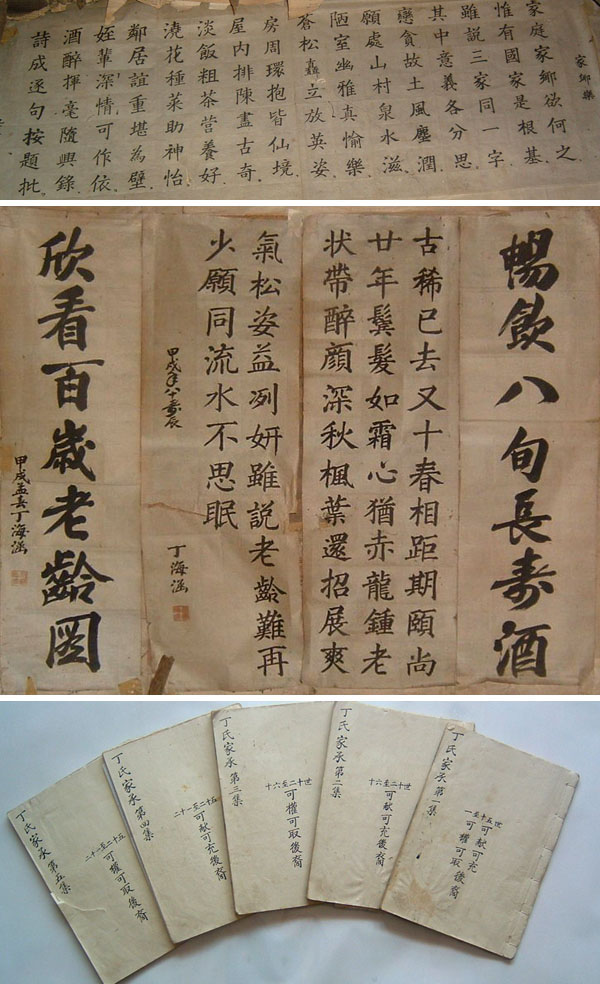 家鄉樂
家庭家鄉欲何之
惟有國家是根基
雖説三家同一字
其中意義各分思
戀貪故土風塵潤
願處山村泉水滋
陋室幽雅真愉樂
蒼松矗立放英姿
房周環抱皆仙境
屋内排陳盡古奇
淡飯粗茶營養好
澆花種菜助神怡
鄰居誼重堪為壁
姪輩深情可作依
酒醉揮毫隨興錄
詩成逐句按題批
暢飲八旬長寿酒
古稀已去又十春相距期頤尚
廿年鬓髮如霜心猶赤龍鍾老
狀帶醉顔深秋楓葉還招展爽
氣松姿益冽妍雖説老齡難再
少願同流水不思眠
甲戌年八十壽辰
丁海涵
欣看百歲老齡図
甲戌孟春丁海涵
丁氏家承第一集
一至十五世
可献可充
可權可取後裔
丁氏家承第二集
十六至二十世
可献可充後裔
丁氏家承第三集
十六至二十世
可權可取後裔
丁氏家承第四集
二十一至二十五
可献可充後裔
丁氏家承第五集
二十一至二十五
可權可取後裔